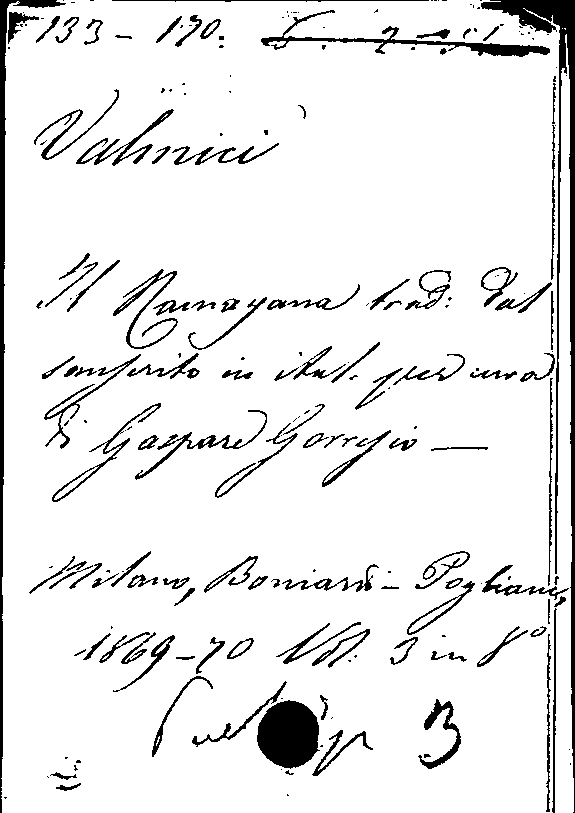 133 - 170.
Valmici
Il Ramayana trad: dal
sanscrito in ital. per cura
di Gaspare Gorresio —
Milano, Boniardi - Pogliani,
1869-70 Vol. 3 in 8°
B